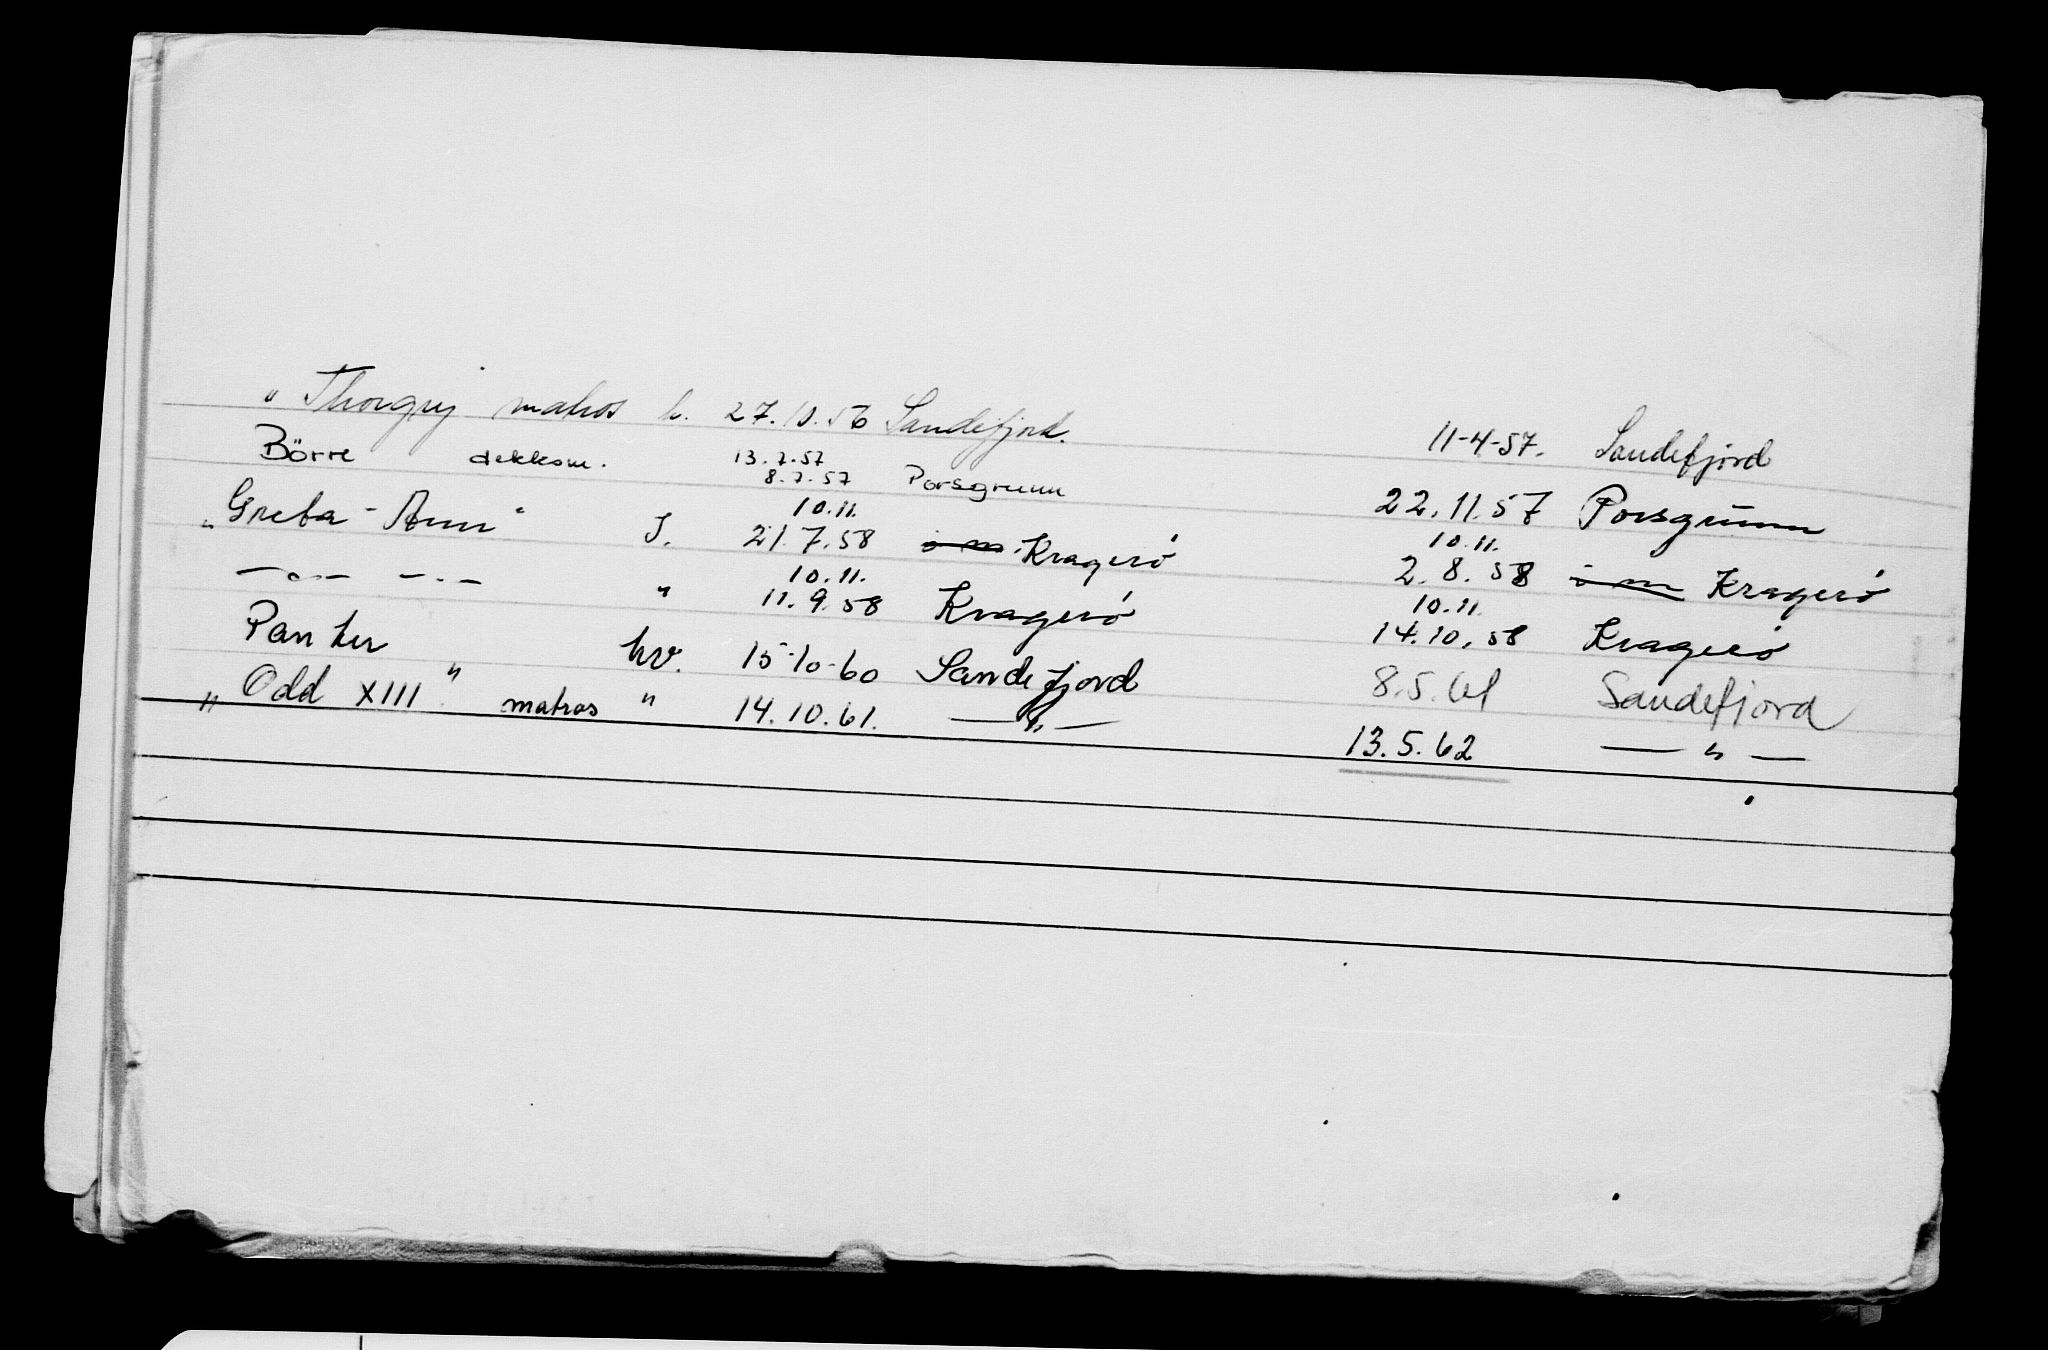 " Thorgrej matros h. 27.10.56 Sandefjord. 11-4-57. Sandefjord
Börre dekksm. 13.7.57
8.7.57 Porsgrunn 22.11.57 Porsgrunn
10.11. 10.11.
„ Greta - Ann " I. 21.7.58 Kragerö 2.8.58 Kragerö
10.11. 10.11.
— „ — — „ — " 11.9.58 Kragerö 14.10.58 Kragerö
Panter hv. 15-10-60 Sandefjord 8.5.61 Sandefjord
„ Odd XIII " matros " 14.10.61. — „ — 13.5.62 — „ —